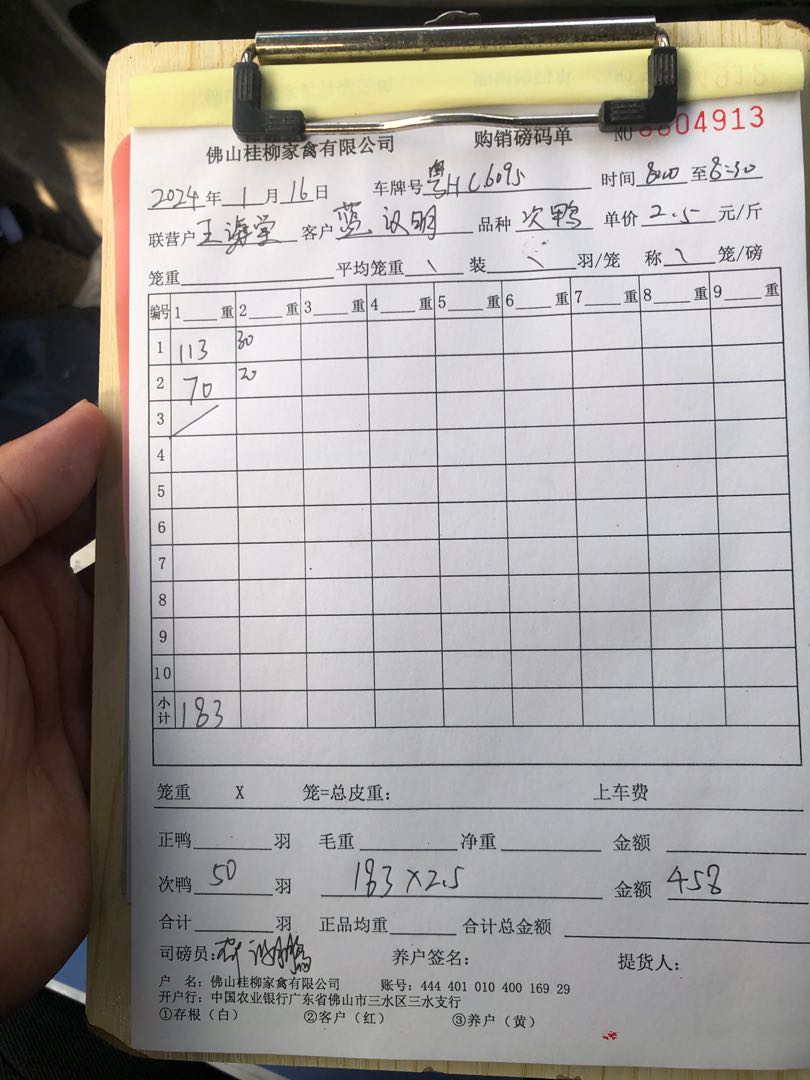 佛山桂柳家禽有限公司 购销磅码单 NO 8804913
2024年1月16日 车牌号粤HC6095 时间800至8:30
联营户王海堂 客户蓝汉明 品种次鸭 单价2.5元/斤
笼重 平均笼重\ 装\羽/笼 称\笼/磅
编号 1重 2重 3重 4重 5重 6重 7重 8重 9重
1 113 30
2 70 20
3 /
4
5
6
7
8
9
10
小计 183
笼重 X 笼=总皮重: 上车费
正鸭 羽 毛重 净重 金额
次鸭 50 羽 183×2.5 金额 458
合计 羽 正品均重 合计总金额
司磅员: 养户签名: 提货人:
户 名: 佛山桂柳家禽有限公司 账号: 444 401 010 400 169 29
开户行: 中国农业银行广东省佛山市三水区三水支行
①存根(白) ②客户(红) ③养户(黄)